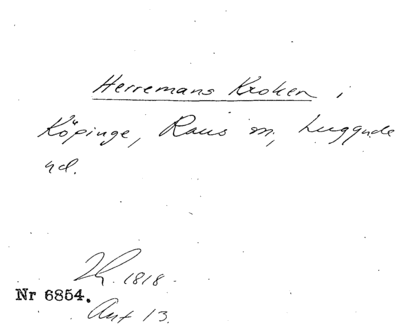 Herremans Kroken i
Köpinge, Raus sn, Luggude
hd.
1818.
Nr 6854.
Ant 13.